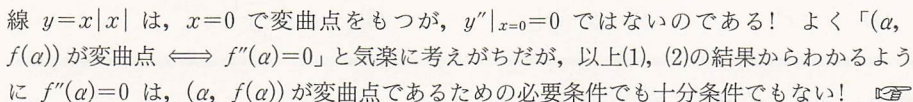 線 y=x|x| は，x=0 で変曲点をもつが，y″|x=0=0 ではないのである！ よく「(α,
f(α)) が変曲点 ⟺ f″(α)=0」と気楽に考えがちだが，以上(1)，(2)の結果からわかるよう
に f″(α)=0 は，(α, f(α)) が変曲点であるための必要条件でも十分条件でもない！ ☞